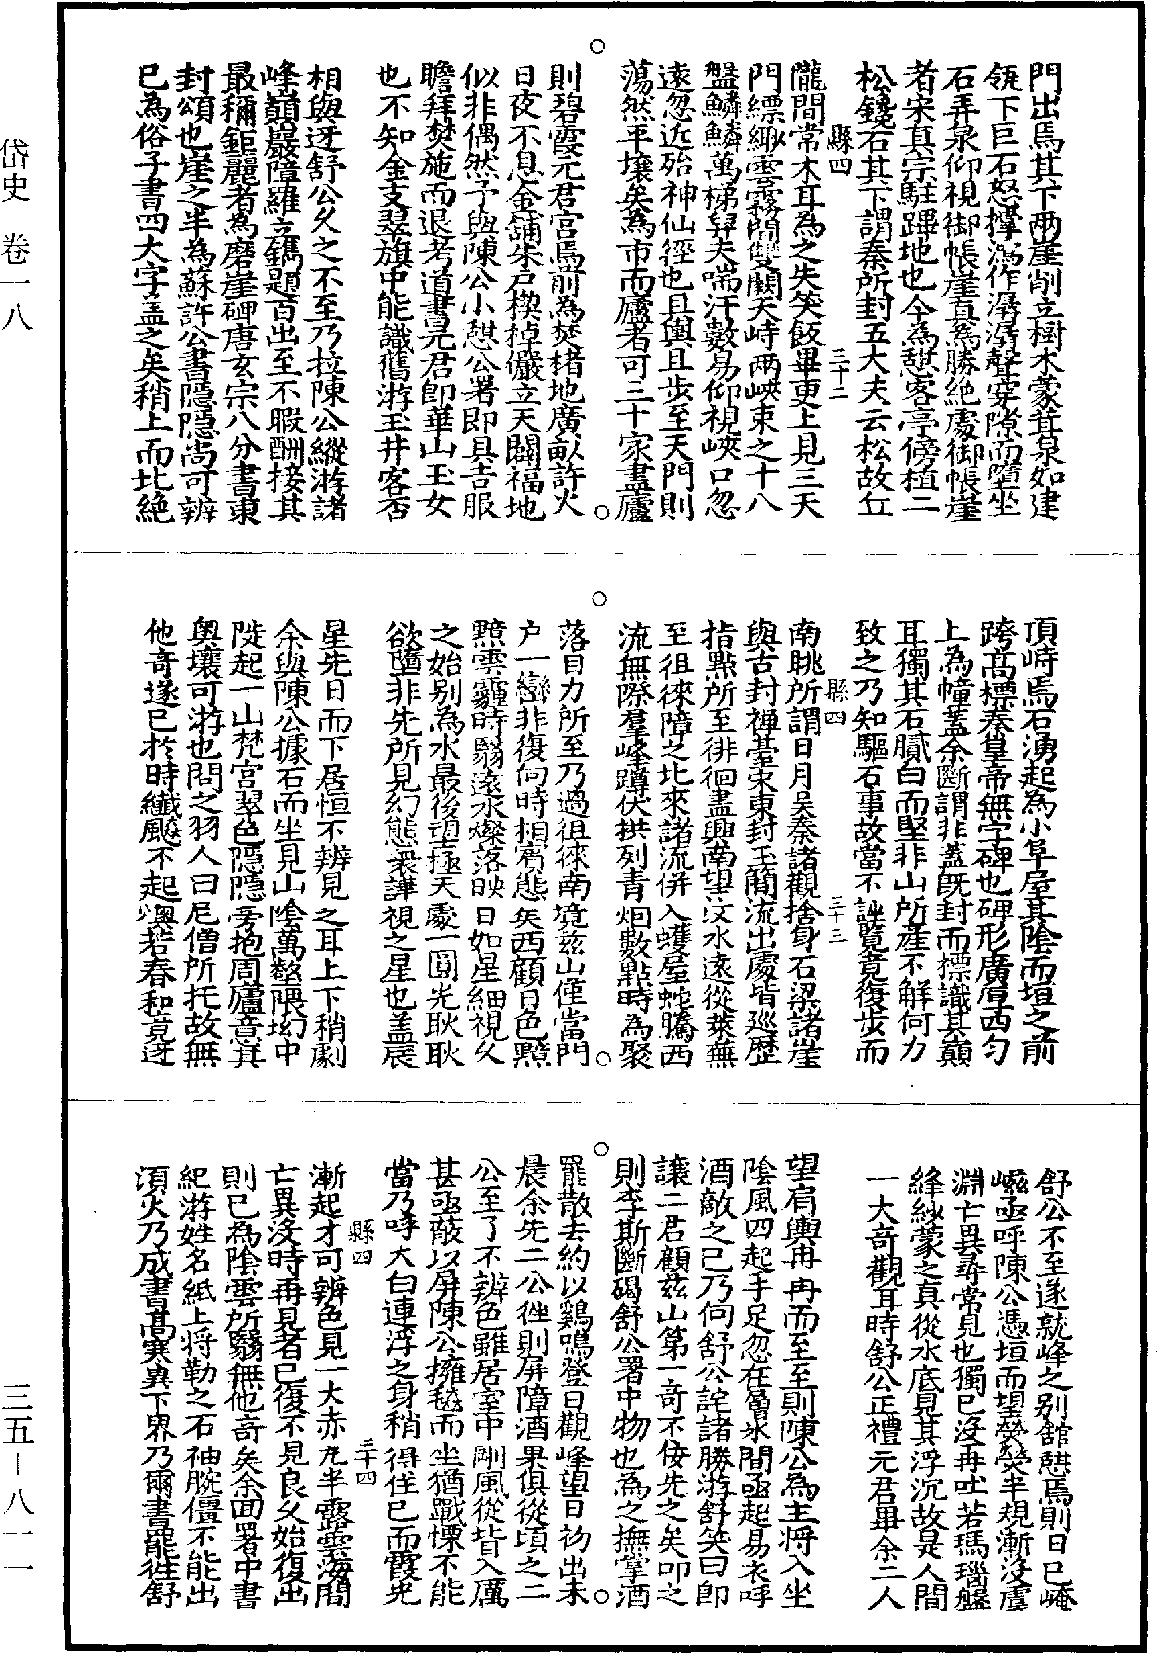 岱史 卷一八
三五－八一一
門出焉其下兩崖削立樹木蒙茸泉如建
瓴下巨石怒撐湍作潺潺聲穿隙而墮坐
石弄泉仰視御帳崖直為勝絶處御帳崖
者宋真宗駐蹕地也今為憇客亭傍植二
松鑱石其下謂秦所封五大夫云松故丘
隴間常木耳為之失笑飯畢更上見三天
縣四
三十二
門縹緲雲霧間雙闕天峙兩峽束之十八
盤鱗鱗萬梯舁夫喘汗數易仰視峽口忽
遠忽近殆神仙徑也且輿且步至天門則
蕩然平壤矣為市而廬者可三十家盡廬
則碧霞元君宮焉前為焚楮地廣畝許火
日夜不息金鋪朱戶楔棹儼立天闢福地
似非偶然予與陳公小憇公署即具吉服
瞻拜焚施而退考道書元君即華山玉女
也不知金支翠旗中能識舊游玉井客否
相與迓舒公久之不至乃拉陳公縱游諸
峰巔巖障羅立鐫題百出至不暇酬接其
最穪鉅麗者為磨崖碑唐玄宗八分書東
封頌也崖之半為蘇許公書隱隱尚可辨
已為俗子書四大字盖之矣稍上而北絶
頂峙焉石湧起為小阜屋其隂而垣之前
跨高標秦皇帝無字碑也碑形廣厚西勻
上為幢蓋余斷謂非蓋既封而標識其巔
耳獨其石膩白而堅非山所產不解何力
致之乃知驅石事故當不誣覽竟復步而
縣四
三十三
南眺所謂日月吳秦諸觀捨身石梁諸崖
與古封禪臺宋東封玉簡流出處皆巡歷
指點所至徘徊盡興南望汶水遠從萊蕪
至徂徠障之北來諸流併入蠖屈蛇騰西
流無際羣峰蹲伏拱列青烟數點時為聚
落目力所至乃過徂徠南境兹山僅當門
户一巒非復向時相㝢態矣西顧日色黯
黯雲靄時翳遠水燦落映日如星細視久
之始别為水最後望極天處一圓光耿耿
欲墮非先所見幻態衆譁視之星也盖晨
星先日而下居恒不辨見之耳上下稍劇
余與陳公據石而坐見山隂萬壑隈坳中
陡起一山梵宮翠色隱隱旁抱周廬意其
奥壤可游也問之羽人曰尼僧所托故無
他奇遂已於時纖颷不起燠若春和竟迓
舒公不至遂就峰之别舘憇焉則日已崦
嵫亟呼陳公憑垣而望㷀㷀半規漸沒虞
淵亡異尋常見也獨已沒再吐若瑪瑙盤
絳紗蒙之真從水底見其浮沉故是人間
一大奇觀耳時舒公正禮元君畢余二人
望肩輿冉冉而至至則陳公為主將入坐
隂風四起手足忽在層氷間亟起易衣呼
酒敵之已乃向舒公詫諸勝游舒笑曰即
讓二君顧兹山第一奇不佞先之矣叩之
則李斯斷碣舒公署中物也為之撫掌酒
罷散去約以雞鳴登日觀峰望日初出未
晨余先二公徃則屏障酒果俱從頃之二
公至了不辨色雖居室中剛風從背入厲
甚亟蔽以屏陳公擁毯而坐猶戰慄不能
當乃呼大白連浮之身稍得住已而霞光
縣四
三十四
漸起才可辨色見一大赤丸半露雲海間
亡異沒時再見者已復不見良乆始復出
則已為隂雲所翳無他奇矣余回署中書
紀游姓名紙上将勒之石袖腕僵不能出
湏火乃成書髙寒異下界乃爾書罷徃舒